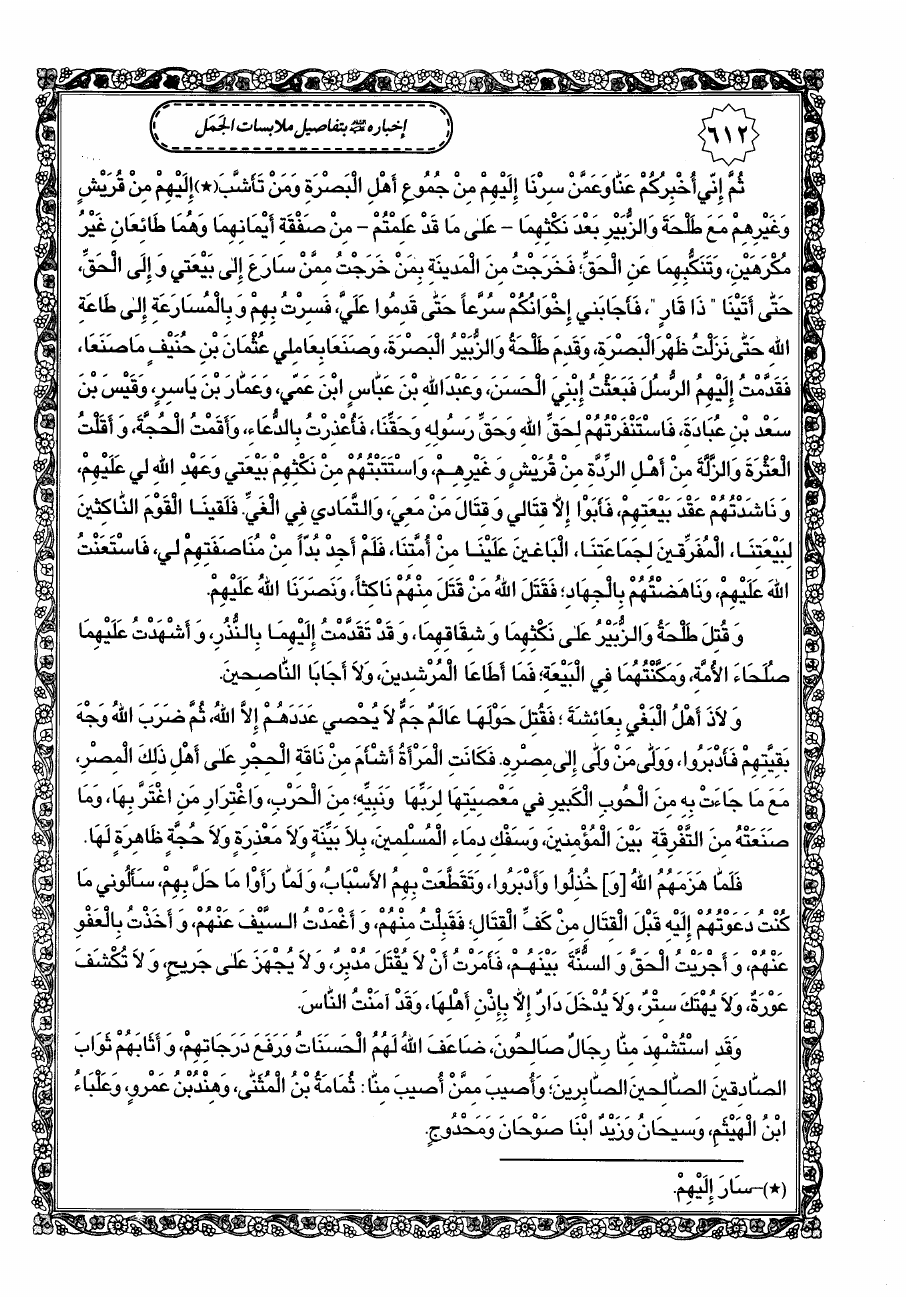 ٦١٢
إخباره عليه السلام بتفاصيل ملابسات الجَمَل
ثُمَّ إِنّي أُخْبِرُكُمْ عَنّا وَعَمَّنْ سِرْنَا إِلَيْهِمْ مِنْ جُمُوعِ أَهْلِ الْبَصْرَةِ وَمَنْ تَأَشَّبَ(★) إِلَيْهِمْ مِنْ قُرَيْشٍ
وَغَيْرِهِمْ مَعَ طَلْحَةَ وَالزُّبَيْرِ بَعْدَ نَكْثِهِمَا – عَلى مَا قَدْ عَلِمْتُمْ – مِنْ صَفْقَةِ أَيْمَانِهِمَا وَهُمَا طَائِعَانِ غَيْرُ
مُكْرَهَيْنِ، وَتَنَكُّبِهِمَا عَنِ الْحَقِّ؛ فَخَرَجْتُ مِنَ الْمَدينَةِ بِمَنْ خَرَجْتُ مِمَّنْ سَارَعَ إِلى بَيْعَتي وَ إِلَى الْحَقِّ،
حَتّى أَتَيْنَا " ذَا قَارٍ "، فَأَجَابَني إِخْوَانُكُمْ سُرَّعاً حَتّى قَدِمُوا عَلَيَّ، فَسِرْتُ بِهِمْ وَ بِالْمُسَارَعَةِ إِلى طَاعَةِ
اللهِ حَتّى نَزَلْتُ ظَهْرَ الْبَصْرَةِ، وَقَدِمَ طَلْحَةُ وَالزُّبَيْرُ الْبَصْرَةَ، وَصَنَعَا بِعَامِلي عُثْمَانَ بْنِ حُنَيْفٍ مَا صَنَعَا،
فَقَدَّمْتُ إِلَيْهِمُ الرُّسُلَ فَبَعَثْتُ إِبْنِيَ الْحَسَنَ، وَعَبْدَ اللهِ بْنَ عَبّاسٍ ابْنَ عَمّي، وَعَمّارَ بْنَ يَاسِرٍ، وَقَيْسَ بْنَ
سَعْدِ بْنِ عُبَادَةَ، فَاسْتَنْفَرْتُهُمْ لِحَقِّ اللهِ وَحَقِّ رَسُولِهِ وَحَقِّنَا، فَأَعْذَرْتُ بِالدُّعَاءِ، وَأَقَمْتُ الْحُجَّةَ، وَ أَقَلْتُ
الْعَثْرَةَ وَالزَّلَّةَ مِنْ أَهْلِ الرِّدَّةِ مِنْ قُرَيْشٍ وَ غَيْرِهِمْ، وَاسْتَتَبْتُهُمْ مِنْ نَكْثِهِمْ بَيْعَتي وَعَهْدِ اللهِ لي عَلَيْهِمْ،
وَ نَاشَدْتُهُمْ عَقْدَ بَيْعَتِهِمْ، فَأَبَوْا إِلاَّ قِتَالي وَ قِتَالَ مَنْ مَعِيَ، وَالتَّمَادي فِي الْغَيِّ. فَلَقينَا الْقَوْمَ النّاكِثينَ
لِبَيْعَتِنَا، الْمُفَرِّقينَ لِجَمَاعَتِنَا، الْبَاغينَ عَلَيْنَا مِنْ أُمَّتِنَا، فَلَمْ أَجِدْ بُدّاً مِنْ مُنَاصَفَتِهِمْ لي، فَاسْتَعَنْتُ
اللهَ عَلَيْهِمْ، وَنَاهَضْتُهُمْ بِالْجِهَادِ؛ فَقَتَلَ اللهُ مَنْ قَتَلَ مِنْهُمْ نَاكِثاً، وَنَصَرَنَا اللهُ عَلَيْهِمْ.
وَ قُتِلَ طَلْحَةُ وَالزُّبَيْرُ عَلى نَكْثِهِمَا وَ شِقَاقِهِمَا، وَ قَدْ تَقَدَّمْتُ إِلَيْهِمَا بِالنُّذُرِ، وَ أَشْهَدْتُ عَلَيْهِمَا
صُلَحَاءَ الأُمَّةِ، وَمَكَّنْتُهُمَا فِي الْبَيْعَةِ؛ فَمَا أَطَاعَا الْمُرْشِدينَ، وَلاَ أَجَابَا النّاصِحينَ.
وَ لاَذَ أَهْلُ الْبَغْيِ بِعَائِشَةَ ؛ فَقُتِلَ حَوْلَهَا عَالَمٌ جَمٌّ لاَ يُحْصي عَدَدَهُمْ إِلاَّ اللهُ، ثُمَّ ضَرَبَ اللهُ وَجْهَ
بَقِيَّتِهِمْ فَأَدْبَرُوا، وَوَلّى مَنْ وَلّى إِلى مِصْرِهِ. فَكَانَتِ الْمَرْأَةُ أَشْأَمَ مِنْ نَاقَةِ الْحِجْرِ عَلى أَهْلِ ذلِكَ الْمِصْرِ،
مَعَ مَا جَاءَتْ بِهِ مِنَ الْحُوبِ الْكَبيرِ في مَعْصِيَتِهَا لِرَبِّهَا وَنَبِيِّهِ؛ مِنَ الْحَرْبِ، وَاغْتِرَارِ مَنِ اغْتَرَّ بِهَا، وَمَا
صَنَعَتْهُ مِنَ التَّفْرِقَةِ بَيْنَ الْمُؤْمِنينَ، وَسَفْكِ دِمَاءِ الْمُسْلِمينَ، بِلاَ بَيِّنَةٍ وَلاَ مَعْذِرَةٍ وَلاَ حُجَّةٍ ظَاهِرَةٍ لَهَا.
فَلَمّا هَزَمَهُمُ اللهُ [وَ] خُذِلُوا وَأَدْبَرُوا، وَتَقَطَّعَتْ بِهِمُ الأَسْبَابُ، وَ لَمّا رَأَوْا مَا حَلَّ بِهِمْ، سَأَلُوني مَا
كُنْتُ دَعَوْتُهُمْ إِلَيْهِ قَبْلَ الْقِتَالِ مِنْ كَفِّ الْقِتَالِ؛ فَقَبِلْتُ مِنْهُمْ، وَ أَغْمَدْتُ السَّيْفَ عَنْهُمْ، وَ أَخَذْتُ بِالْعَفْوِ
عَنْهُمْ، وَ أَجْرَيْتُ الْحَقَّ وَ السُّنَّةَ بَيْنَهُمْ، فَأَمَرْتُ أَنْ لاَ يُقْتَلَ مُدْبِرٌ، وَ لاَ يُجْهَزَ عَلى جَريحٍ، وَ لاَ تُكْشَفَ
عَوْرَةٌ، وَلاَ يُهْتَكَ سِتْرٌ، وَلاَ يُدْخَلَ دَارٌ إِلاَّ بِإِذْنِ أَهْلِهَا، وَقَدْ امَنْتُ النّاسَ.
وَقَدِ اسْتُشْهِدَ مِنّا رِجَالٌ صَالِحُونَ، ضَاعَفَ اللهُ لَهُمُ الْحَسَنَاتِ وَرَفَعَ دَرَجَاتِهِمْ، وَ أَثَابَهُمْ ثَوَابَ
الصّادِقينَ الصّالِحينَ الصّابِرينَ؛ وَأُصيبَ مِمَّنْ أُصيبَ مِنّا : ثُمَامَةُ بْنُ الْمُثَنّى، وَهِنْدُ بْنُ عَمْرٍو، وَعَلْبَاءُ
ابْنُ الْهَيْثَمِ، وَسيحَانُ وَزَيْدٌ ابْنَا صَوْحَانَ وَمَحْدُوجٍ.
(★)–سَارَ إِلَيْهِمْ.